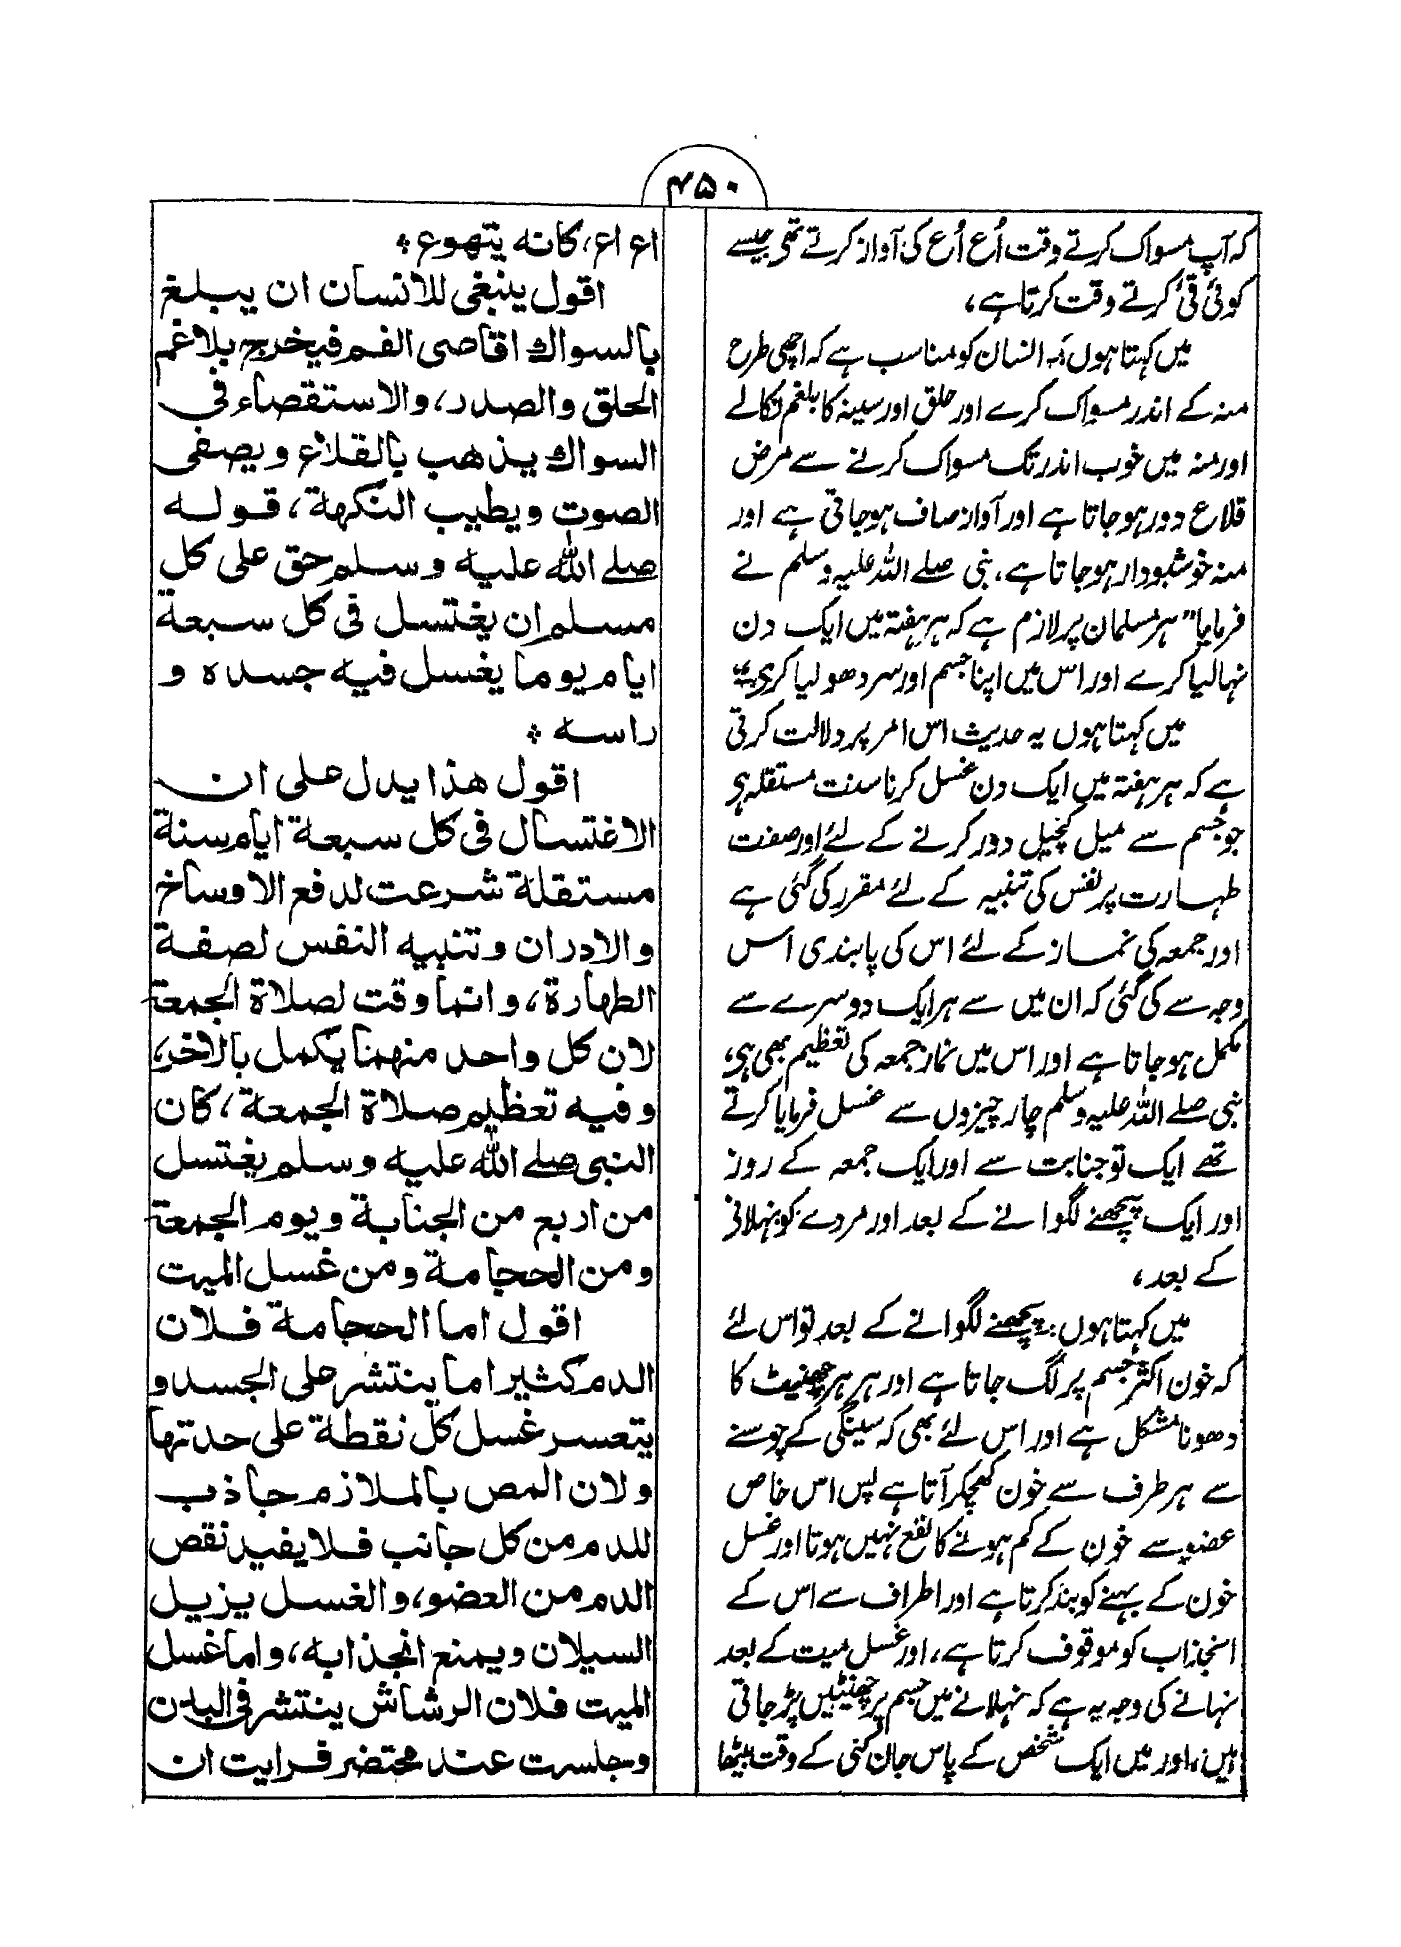 ۴۵۰
کہ آپ مسواک کرتے وقت اُع اُع کی آواز کرتے تھے جیسے
کوئی قئ کرتے وقت کرتا ہے،
میں کہتا ہوں انسان کو مناسب ہے کہ اچھی طرح
منہ کے اندر مسواک کرے اور حلق اور سینہ کا بلغم نکالے
اور منہ میں خوب اندر تک مسواک کرنے سے مرض
قلاع دور ہو جاتا ہے اور آواز صاف ہو جاتی ہے اور
منہ خوشبودار ہو جاتا ہے، نبی صلے اللہ علیہ وسلم نے
فرمایا "ہر مسلمان پر لازم ہے کہ ہر ہفتہ میں ایک دن
نہا لیا کرے اور اس میں اپنا جسم اور سر دھو لیا کرے"
میں کہتا ہوں یہ حدیث اس امر پر دلالت کرتی
ہے کہ ہر ہفتہ میں ایک دن غسل کرنا سنت مستقلہ ہی
جو جسم سے میل کچیل دور کرنے کے لئے اور صفت
طہارت پر نفس کی تنبیہ کے لئے مقرر کی گئی ہے
اور جمعہ کی نماز کے لئے اس کی پابندی اس
وجہ سے کی گئی کہ ان میں سے ہر ایک دوسرے سے
مکمل ہو جاتا ہے اور اس میں نماز جمعہ کی تعظیم بھی ہی،
نبی صلے اللہ علیہ وسلم چار چیزوں سے غسل فرمایا کرتے
تھے ایک تو جنابت سے اور ایک جمعہ کے روز
اور ایک پچھنے لگوانے کے بعد اور مردے کو نہلانے
کے بعد،
میں کہتا ہوں: پچھنے لگوانے کے بعد تو اس لئے
کہ خون اکثر جسم پر لگ جاتا ہے اور ہر ہر چھینٹ کا
دھونا مشکل ہے اور اس لئے بھی کہ سینگی کے چوسنے
سے ہر طرف سے خون کھچکر آتا ہے پس اس خاص
عضو سے خون کے کم ہونے کا نفع نہیں ہوتا اور غسل
خون کے بہنے کو بند کرتا ہے اور اطراف سے اس کے
انجذاب کو موقوف کرتا ہے، اور غسل میت کے بعد
نہانے کی وجہ یہ ہے کہ نہلانے میں جسم پر چھینٹیں پڑ جاتی
ہیں، اور میں ایک شخص کے پاس جان کنی کے وقت بیٹھا
اع اع، کانه یتهوع ؞
اقول ینبغی للانسان ان یبلغ
بالسواك اقاصی الفم فیخرج بلاغم
الحلق والصدر، والاستقصاء فی
السواك یذهب بالقلاع ویصفی
الصوت ویطیب النکهة، قوله
صلے الله علیه وسلم حق علی کل
مسلم ان یغتسل فی کل سبعة
ایام یوما یغسل فیه جسده و
راسه ؞
اقول هذا یدل علی ان
الاغتسال فی کل سبعة ایام سنة
مستقلة شرعت لدفع الاوساخ
والادران وتنبیه النفس لصفة
الطهارة، وانما وقت لصلاة الجمعة
لان کل واحد منهما یکمل بالاخر،
وفیه تعظیم صلاة الجمعة، کان
النبی صلے الله علیه وسلم یغتسل
من اربع من الجنابة ویوم الجمعة
ومن الحجامة ومن غسل المیت
اقول اما الحجامة فلان
الدم کثیرا ما ینتشر علی الجسد و
یتعسر غسل کل نقطة علی حدتها
ولان المص بالملازم جاذب
للدم من کل جانب فلا یفید نقص
الدم من العضو، والغسل یزیل
السیلان ویمنع انجذابه، واما غسل
المیت فلان الرشاش ینتشر فی البدن
وجلست عند محتضر فرایت ان